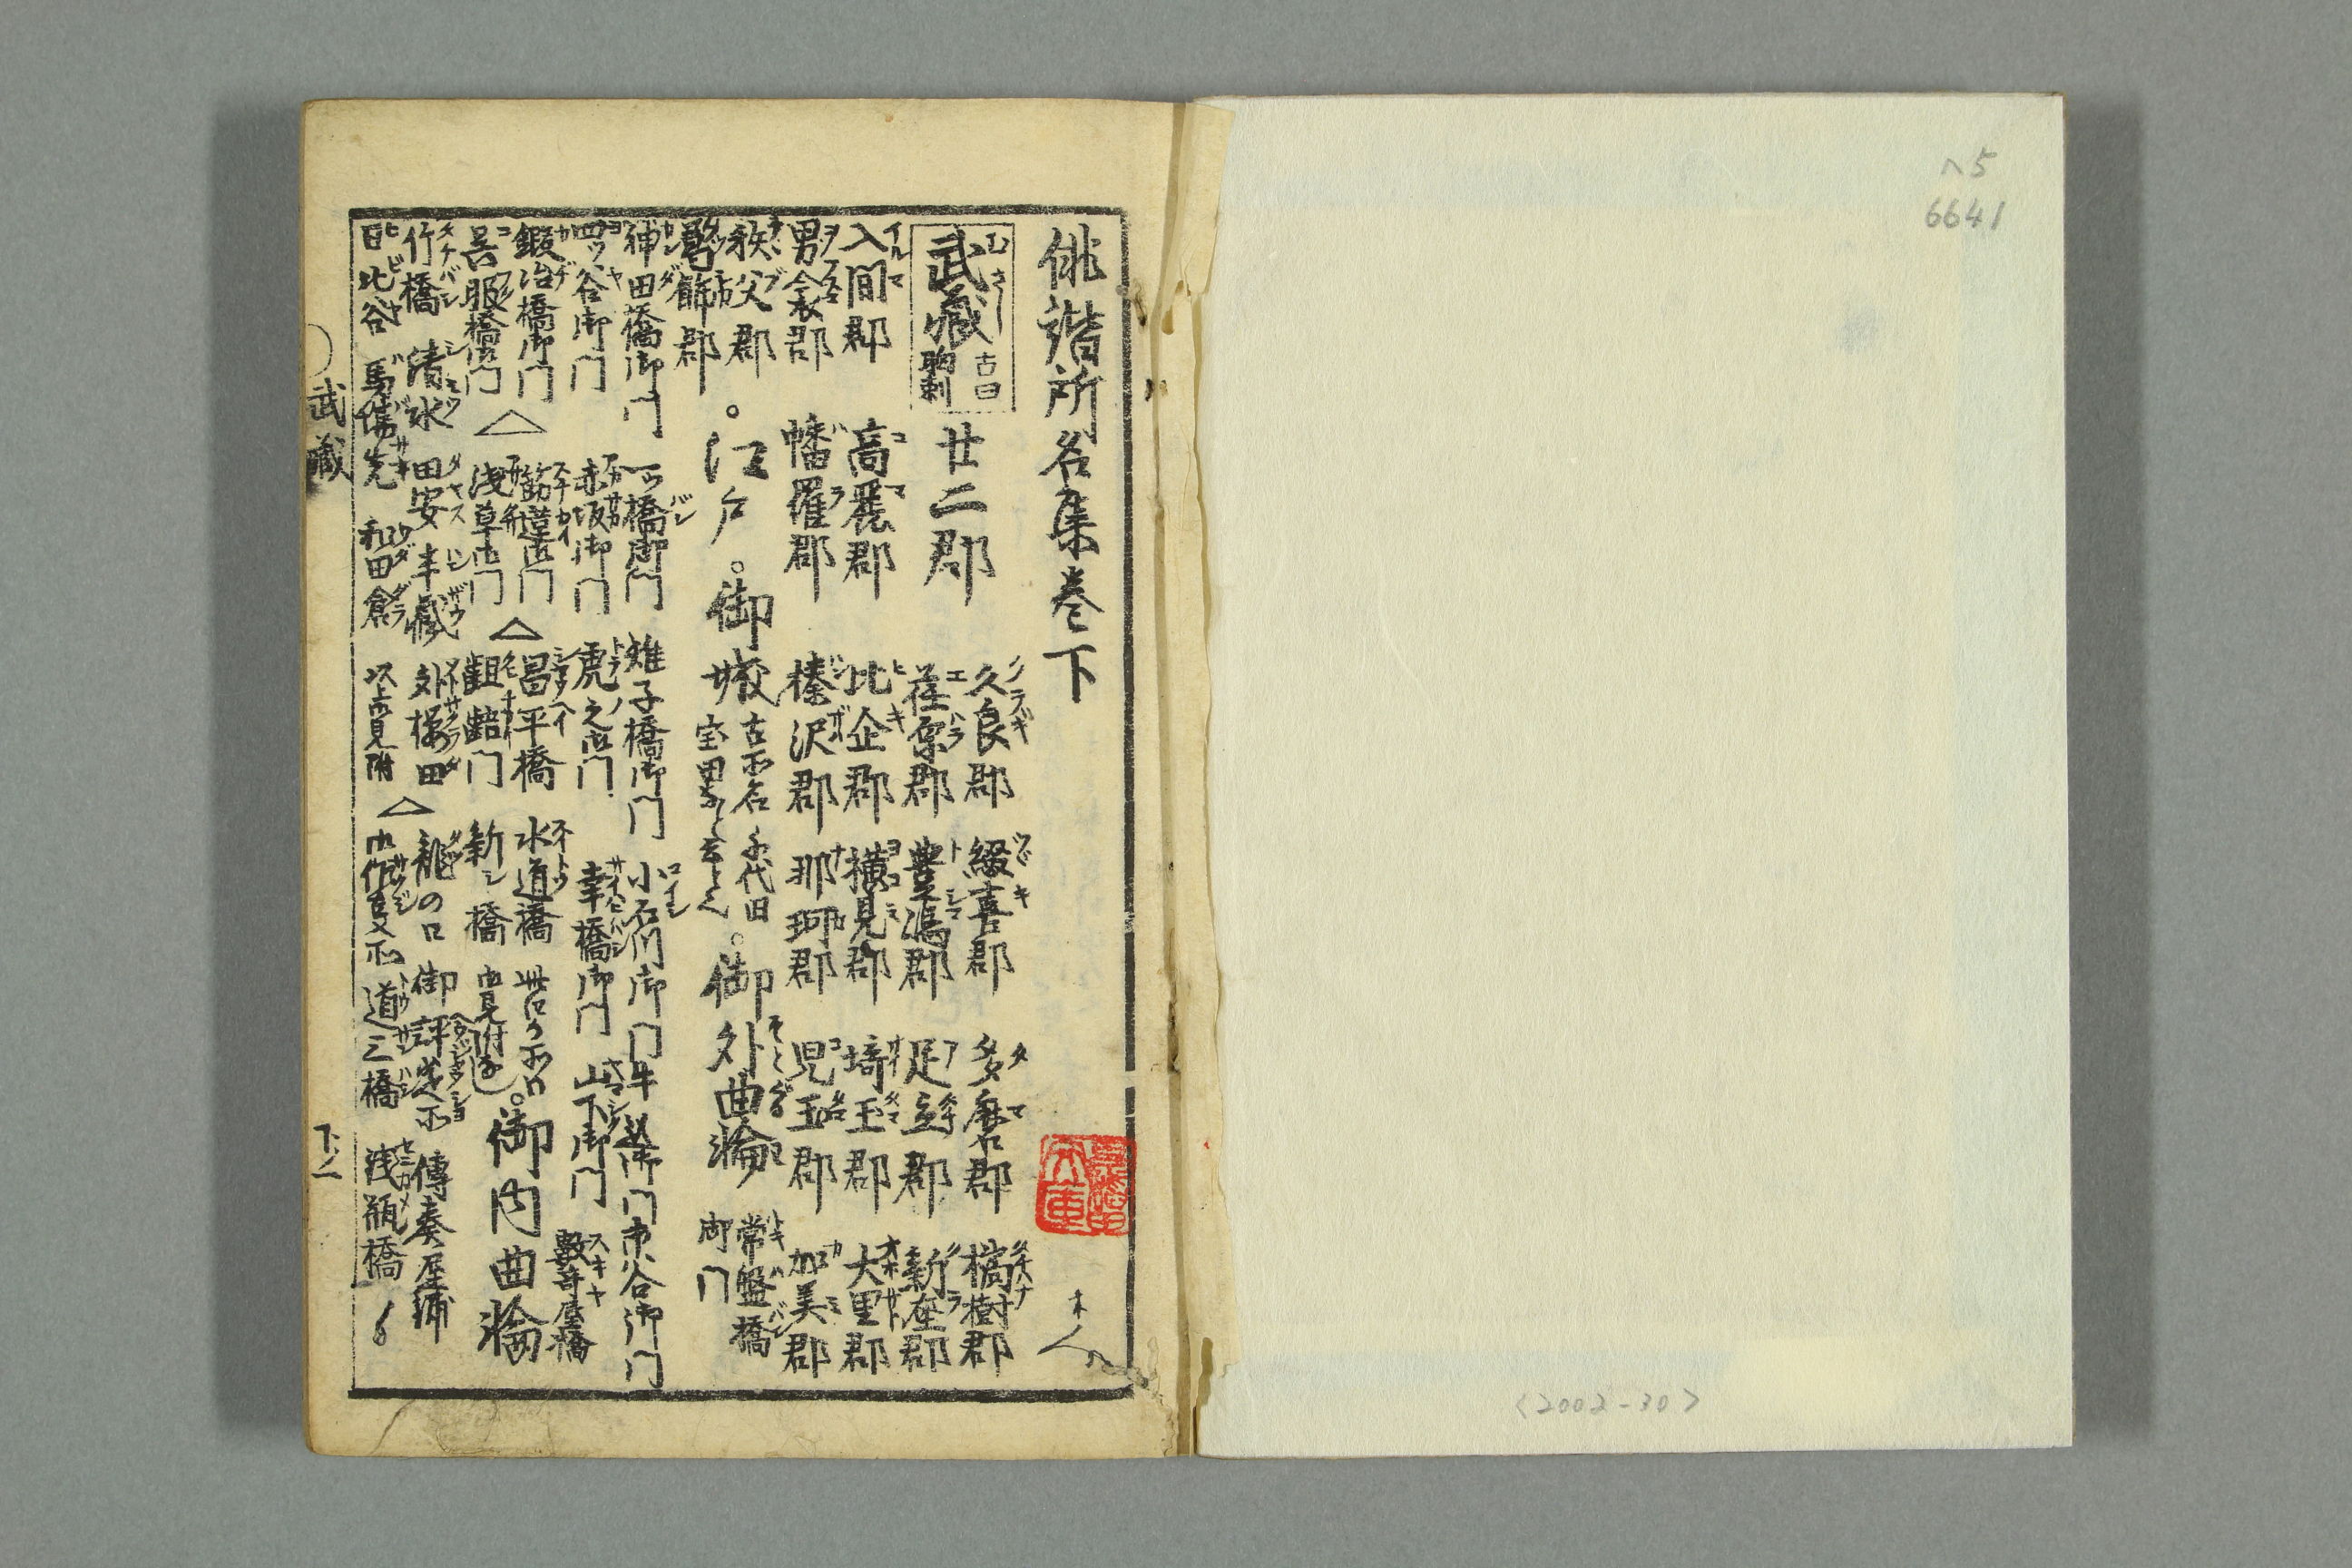 ヘ5
6641
<2002-30>
俳諧所名集巻下
武蔵 古曰胸刺 廿二郡
久良郡 綴喜郡 多磨郡 橘樹郡
荏原郡 豊嶋郡 足立郡 新座郡
入間郡 高麗郡 比企郡 横見郡 埼玉郡 大里郡
男衾郡 幡羅郡 榛沢郡 那珂郡 児玉郡 加美郡
秩父郡
葛餝郡
。江戸 。御城 古所名千代田 宝田 。御外曲輪 常盤橋御門
神田橋御門 一ツ橋御門 雉子橋御門 小石川御門 牛込御門 市谷御門
四ツ谷御門 赤坂御門 虎之御門 幸橋御門 山下御門 數寄屋橋
鍛冶橋御門 △ 筋違御門 △ 昌平橋 水道橋
呉服橋御門 浅草御門 新シ橋 。御内曲輪
竹橋 清水 田安 半蔵 外桜田 △ 龍の口 御評定所 傳奏屋鋪
日比谷 馬場先 和田倉 以上御見附 御作事所 道三橋 銭瓶橋
武蔵
下ノ一